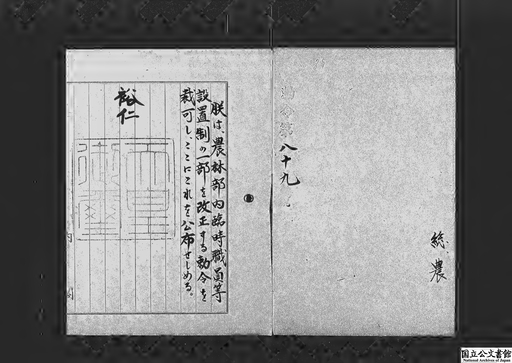 勅令第八十九
総、農
朕は、農林部内臨時職員等
設置制の一部を改正する勅令を
裁可し、ここにこれを公布せしめる。
裕仁
天皇
御璽
内閣
国立公文書館
National Archives of Japan